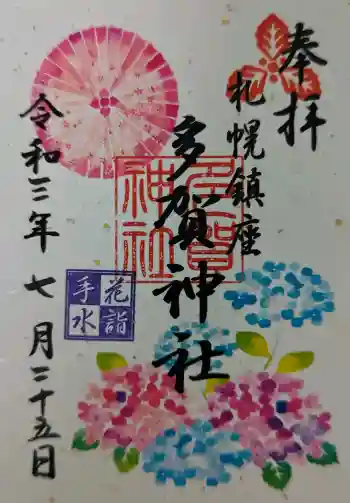 奉拝
札幌鎮座
多賀神社
多賀
神社
花詣
手水
令和三年七月二十五日